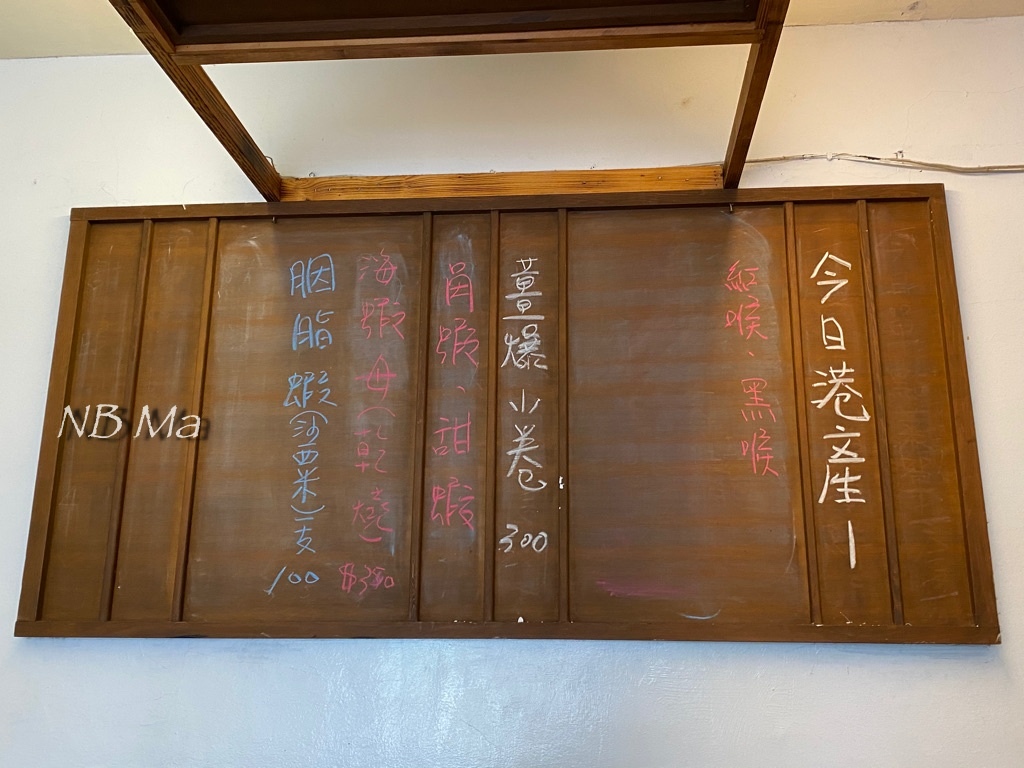 今日港文生一
紅喉、黑喉
薑爆小卷 300
角蝦、甜蝦
海蝦母(乾燒) $350
胭脂蝦(沙西米)一支 100
NB Ma